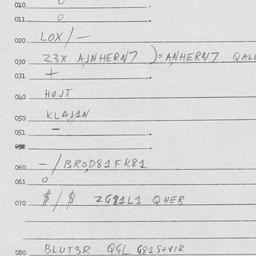 010 0
011 0
020 LOX/-
030 Z3X AJNHERN7 )=A,NHERN7 QAL
031 +
040 HOJT
050 KLA,J1N
051 -
060 -/BRO,D81FK81
061 0
070 $/$ ZG81L1 QHER
080 BLUT3R QGL G81S+V1R